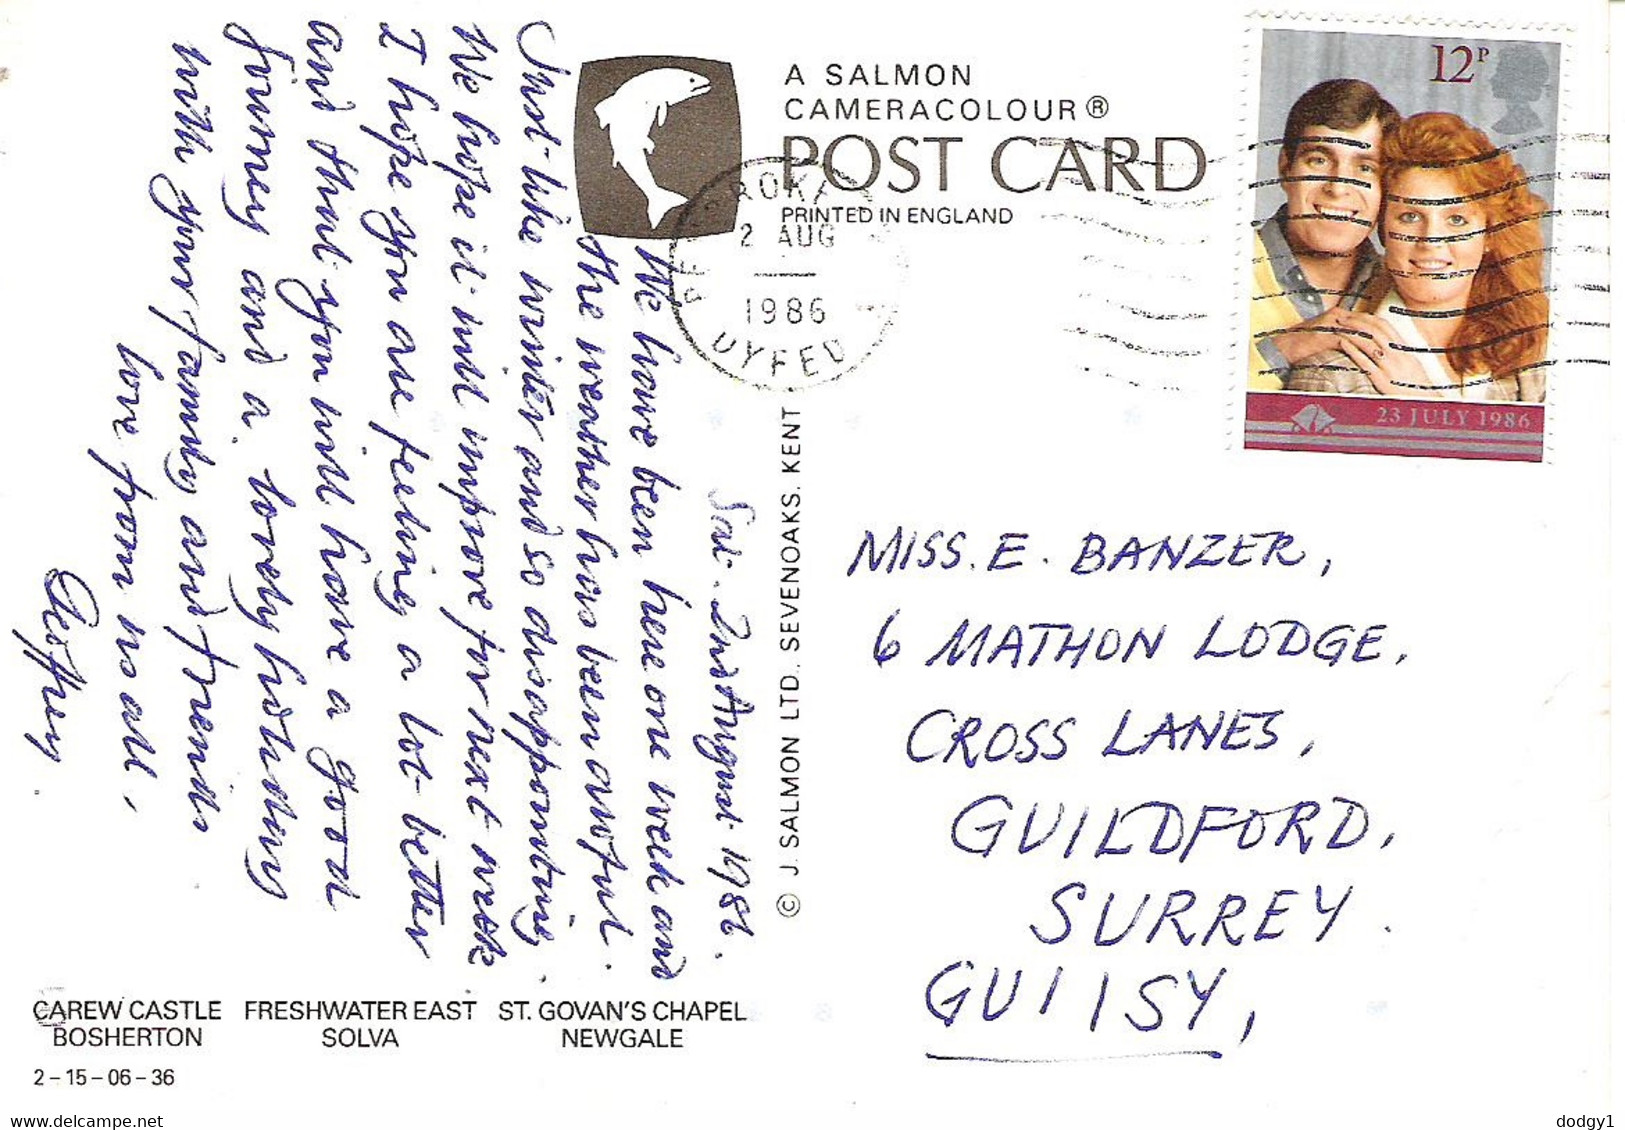 A SALMON
CAMERACOLOUR ®
POST CARD
PRINTED IN ENGLAND
12P
23 JULY 1986
2 AUG
1986
DYFED
Sat. 2nd August 1986.
We have been here one week and
the weather has been awful.
Just like winter and so disappointing.
We hope it will improve for next week
I hope you are feeling a lot better
and that you will have a good
journey and a lovely holiday
with your family and friends
love from us all,
Geoffrey
MISS. E. BANZER,
6 MATHON LODGE,
CROSS LANES,
GUILDFORD,
SURREY.
GU1 1SY,
© J. SALMON LTD., SEVENOAKS, KENT
CAREW CASTLE FRESHWATER EAST ST. GOVAN'S CHAPEL
BOSHERTON SOLVA NEWGALE
2 – 15 – 06 – 36
www.delcampe.net
dodgy1